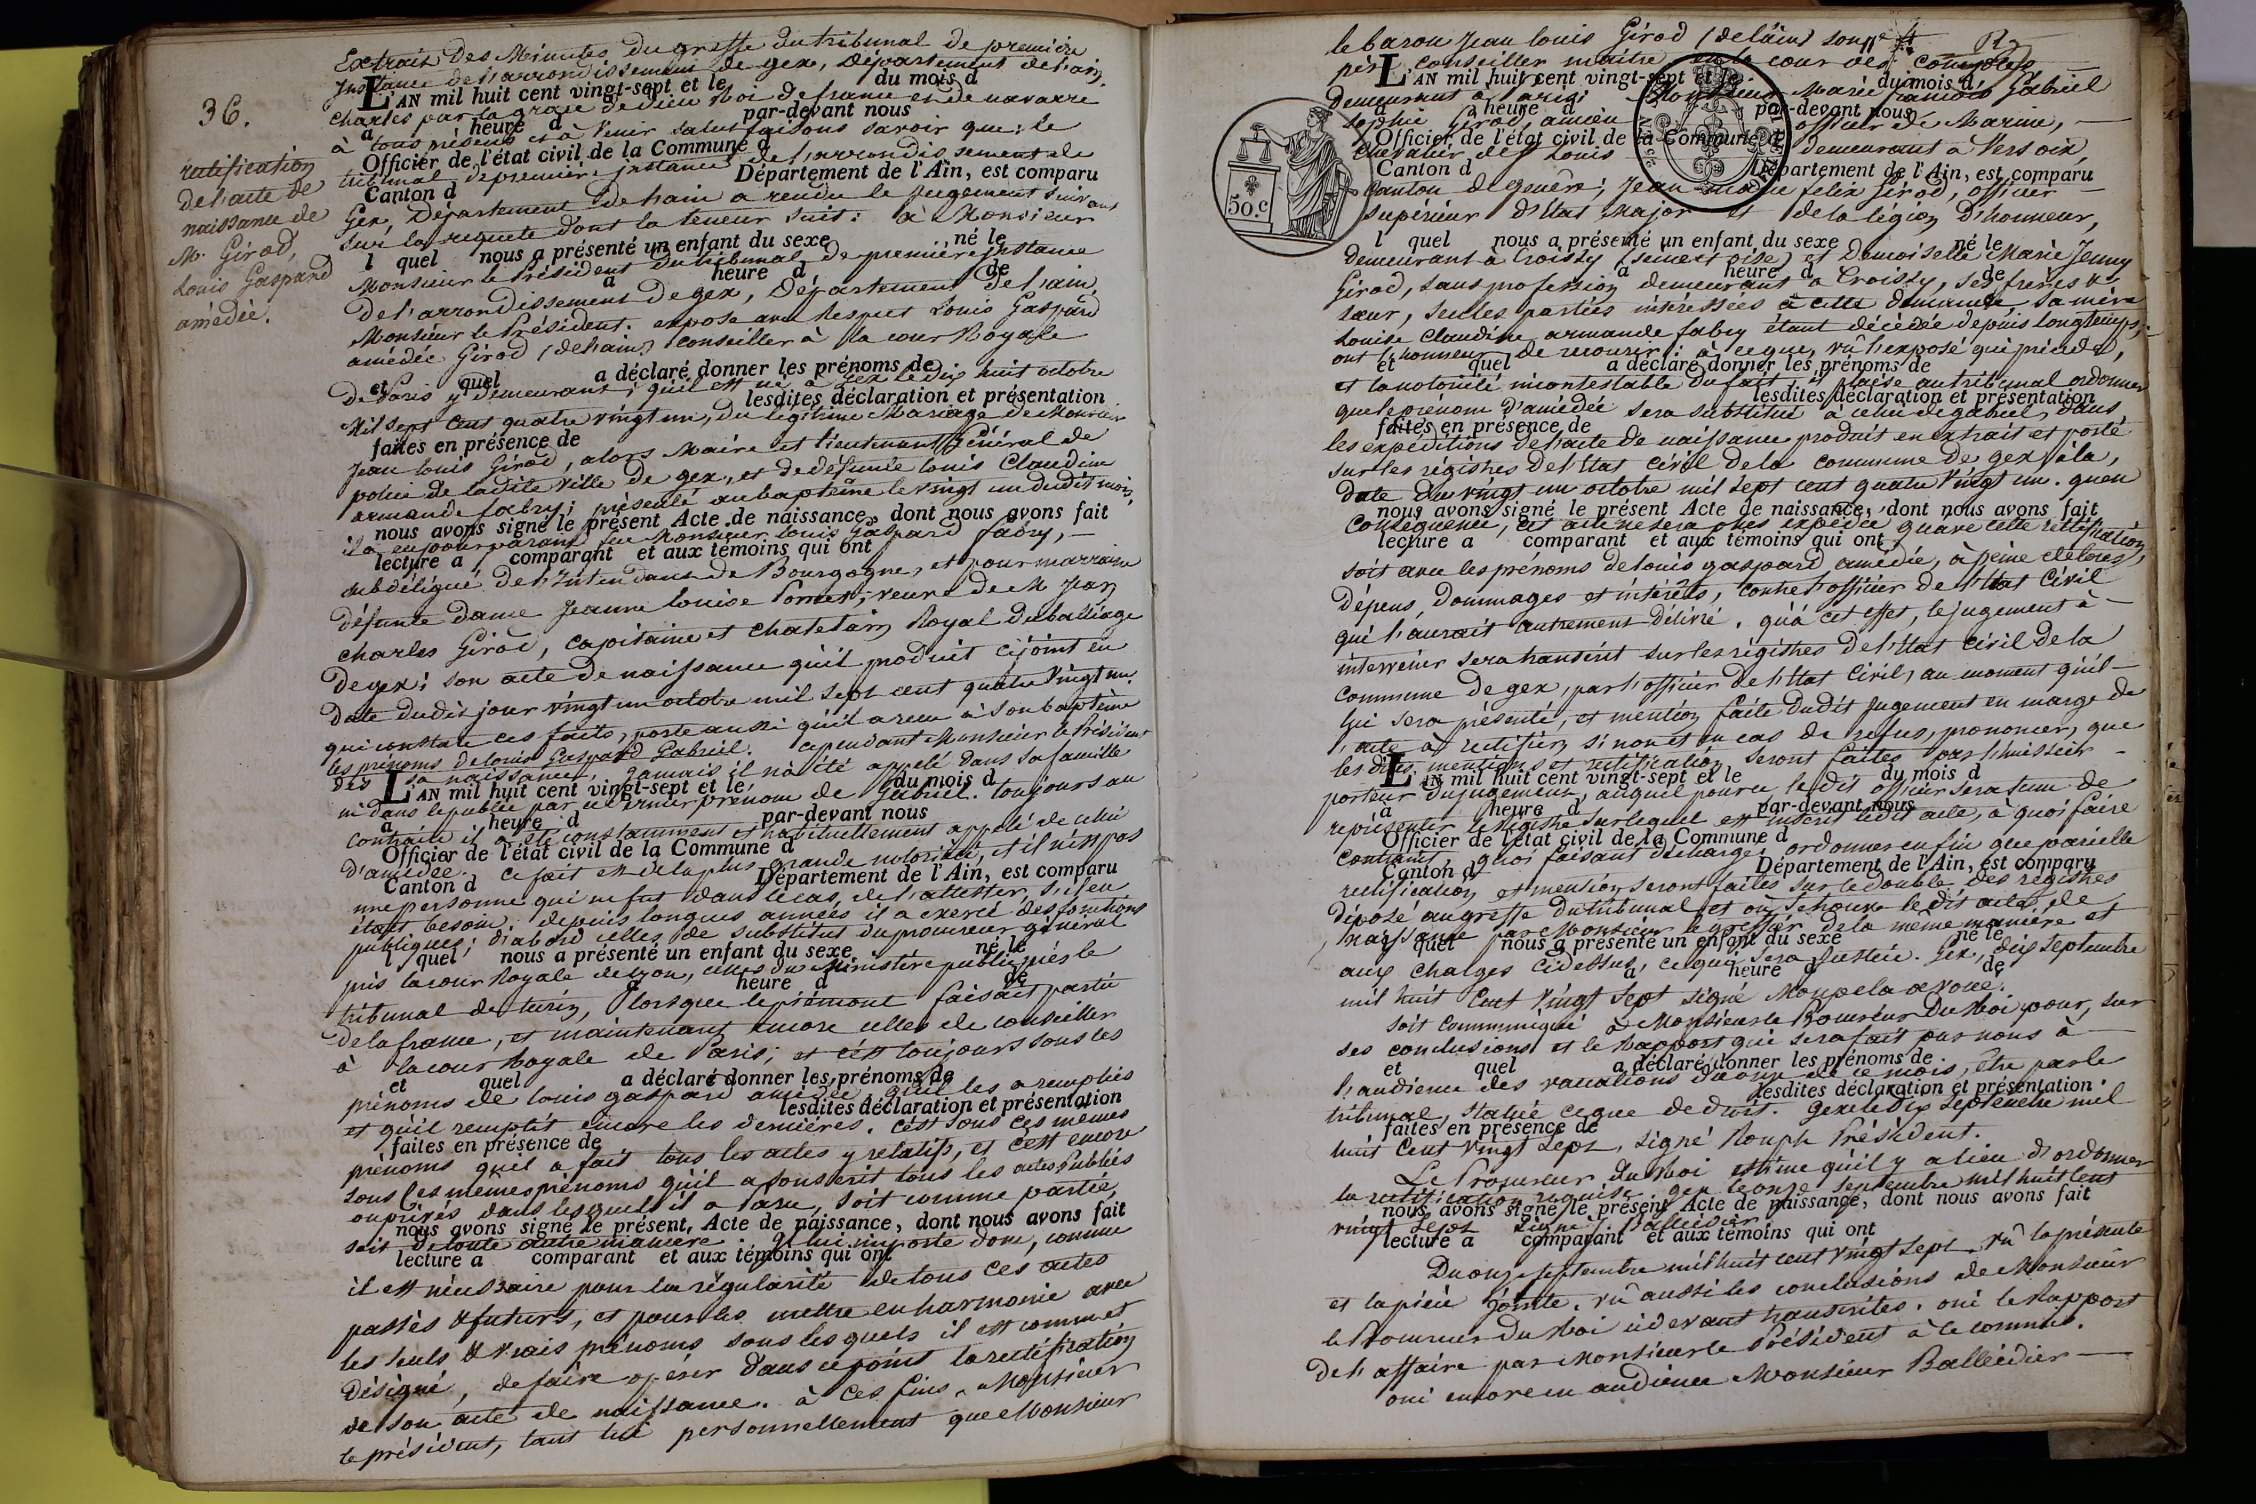 36.
rectification
de l'acte de
naissance de
Mr. Girod,
Louis Gaspard
amédée.
Extrait des Minutes du greffe du tribunal de première
Instance de l'arrondissement de gex, Département de l'ain,
L'AN mil huit cent vingt-sept et le du mois d
Charles par la grace de dieu Roi de france et de navarre
a heure d par-devant nous
à tous présens et à venir salut faisons savoir que: le
Officier de l'état civil de la Commune d
tribunal de première instance de l'arrondissement de
Canton d Département de l'Ain, est comparu
Gex, Département de l'ain a rendu le jugement suivant
sur la requete dont la teneur suit: a Monsieur
l quel nous a présenté un enfant du sexe né le
Monsieur le Président du tribunal de première instance
a heure d de
de l'arrondissement de gex, Département de l'ain,
Monsieur le Président. expose avec Respect Louis Gaspard
amédée Girod (de l'ain) conseiller à la cour Royale
et quel a déclaré donner les prénoms de
De Paris y demeurant; qu'il est né à Gex le dix huit octobre
lesdites déclaration et présentation
Mil sept cent quatre vingt un, du légitime Mariage de Monsieur
faites en présence de
Jean louis Girod, alors Maire et lieutenant Général de
police de ladite Ville de gex, et de défunte louis Claudine
armande fabry; présenté au baptême le vingt un dudit mois,
nous avons signé le présent Acte de naissance, dont nous avons fait
il a eu pour parain feu Monsieur louis Gaspard fabry,
lecture a comparant et aux témoins qui ont
subdélégué de l'Intendance de Bourgogne, et pour marraine
défunte dame Jeanne louise veuve de M Jean
charles Girod, capitaine et chatelain Royal du balliage
de gex; son acte de naissance qu'il produit cijoint en
date dudit jour vingt un octobre mil sept cent quatre vingt un,
qui constate ces faits, porte aussi qu'il a recu à son baptème
les prénoms de louis Gaspard Gabriel. cependant Monsieur le Président
des sa naissance, jamais il n'a été appelé dans sa famille
L'AN mil huit cent vingt-sept et le du mois d
ni dans le public par ce dernier prénom de Gabriel. toujours au
a heure d par-devant nous
contraire il a été constamment et habituellement appelé de celui
Officier de l'état civil de la Commune d
d'amédée. ce fait est de la plus grande notoriété, et il n'est pas
Canton d Département de l'Ain, est comparu
une personne qui ne fut dans le cas de l'attester, s'il en
était besoin. depuis longues années il a exercé des fonctions
publiques; d'abord celles de substitut du procureur général
l quel nous a présenté un enfant du sexe né le
près la cour Royale de lyon, celles du Ministère public près le
a heure d de
tribunal de turin, lorsque le piémont faisait partie
de la france, et maintenant encore celles de conseiller
à la cour Royale de Paris; et c'est toujours sous les
et quel a déclaré donner les prénoms de
prénoms de louis gaspard amédée, qu'il les a remplies
lesdites déclaration et présentation
et qu'il remplit encore les dernières. c'est sous ces mêmes
faites en présence de
prénoms qu'il a fait tous les actes y relatifs, et c'est encore
sous ces mêmes prénoms qu'il a souscrit tous les actes Publics
ou privés dans lesquels il a paru, soit comme partie,
nous avons signé le présent Acte de naissance, dont nous avons fait
soit de toute autre manière. Il lui importe donc, comme
lecture a comparant et aux témoins qui ont
il est nécessaire pour la régularité de tous ces actes
passés & futurs, et pour les mettre en harmonie avec
les seuls & vrais prénoms sous lesquels il est connu et
désigné, de faire opérer dans ce point la rectification
de son acte de naissance. à ces fins, Monsieur
le président, tant lui personnellement que Monsieur
le baron Jean louis Girod (de l'ain) son
père, conseiller maître en la cour des Comptes
L'AN mil huit cent vingt-sept et le du mois d
demeurant à Paris; Monsieur Marie francois Gabriel
a heure d par-devant nous
Girod, ancien officier de Marine,
Officier de l'état civil de la Commune d
chevalier de St Louis demeurant à Versoix,
Canton d Département de l'Ain, est comparu
Canton de genève; Jean marie felix Girod, officier
supérieur d'Etat Major et de la légion d'honneur,
l quel nous a présenté un enfant du sexe né le
demeurant à Croissy (seine et oise) et Demoiselle Marie Jenny
a heure d de
Girod, sans profession demeurant à Croissy, ses frères &
sœur, seules parties intéressées à cette demande sa mère
Louise Claudine armande fabry étant décédée depuis longtemps,
ont l'honneur de recourir: à ce que, vû l'exposé qui précède,
et quel a déclaré donner les prénoms de
et la notoriété incontestable du fait il plaise au tribunal ordonner
lesdites déclaration et présentation
que le prénom d'amédée sera substitué à celui de gabriel, dans
faites en présence de
les expéditions de l'acte de naissance produit en extrait et porté
sur les régistres de l'Etat civil de la commune de gex à la
date du vingt un octobre mil sept cent quatre vingt un. qu'en
nous avons signé le présent Acte de naissance, dont nous avons fait
conséquence, cet acte ne sera plus expédié qu'avec cette rectification,
lecture a comparant et aux témoins qui ont
soit avec les prénoms de louis gaspard amédée, à peine de tous
dépens, dommages et intérêts, contre l'officier de l'Etat Civil
qui l'aurait autrement délivré. qu'à cet effet, le jugement à
intervenir sera transcrit sur les régistres de l'Etat Civil de la
commune de gex, par l'officier de l'Etat Civil, au moment qu'il
lui sera présenté, et mention faite dudit Jugement en marge de
l'acte à rectifier, si non et en cas de refus, prononcer, que
les dites mentions et rectification seront faites par l'huissier
L'AN mil huit cent vingt-sept et le du mois d
porteur du jugement, auquel pour ce ledit officier sera tenu de
a heure d par-devant nous
représenter le Régistre sur lequel est inscrit ledit acte, à quoi faire
Officier de l'état civil de la Commune d
contraint, quoi faisant déchargé. ordonner enfin que pareille
Canton d Département de l'Ain, est comparu
rectification et mention seront faites sur le double des régistres
déposé au greffe du tribunal et où se trouve ledit acte de
naissance par Monsieur le greffier de la même manière et
quel nous a présenté un enfant du sexe né le
aux charges cidessus, ce qui sera justice. Gex, dix septembre
a heure d de
mil huit cent vingt sept signé avoué.
soit communiqué à Monsieur le Procureur du Roi pour, sur
ses conclusions et le Rapport qui sera fait par nous à
et quel a déclaré donner les prénoms de
l'audience des vacations du onze de ce mois, être par le
lesdites déclaration et présentation
tribunal, statué ce que de droit. Gex le dix septembre mil
faites en présence de
huit cent vingt sept, signé Rouph Président.
Le Procureur du Roi estime qu'il y a lieu d'ordonner
la rectification requise. gex le onze septembre mil huit cent
nous avons signé le présent Acte de naissance, dont nous avons fait
vingt sept signé
lecture a comparant et aux témoins qui ont
Du onze septembre mil huit cent vingt sept vû la présente
et la pièce jointe. vû aussi les conclusions de Monsieur
le Procureur du Roi cidevant transcrites. oui le Rapport
de l'affaire par Monsieur le Président à ce commis.
oui encore en audience Monsieur Balleidier
50.c